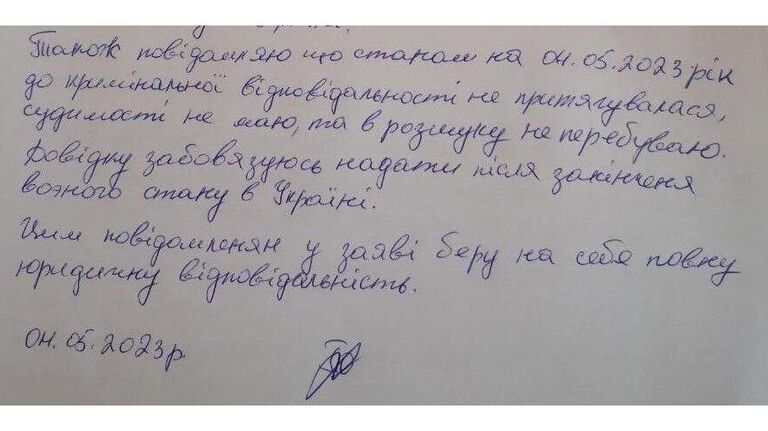 Також повідомляю що станом на 04.05.2023 рік
до кримінальної відповідальності не притягувалася,
судимості не маю, та в розшуку не перебуваю.
Довідку забовязуюсь надати після закінченя
воэного стану в Україні.
Цим повідомленян у заяві беру на себе повну
юридичну відповідальність.
04.05.2023 р.